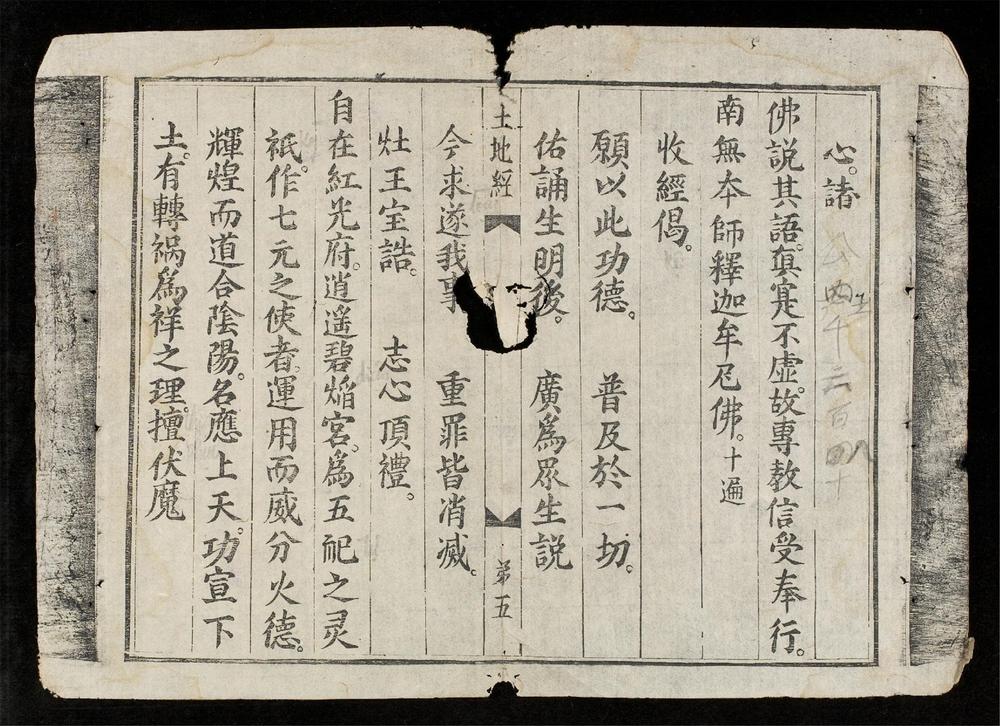 心。諸
佛說其語。眞寔不虛。故專教信受奉行。
南無夲師釋迦牟尼佛。十遍
收經偈。
願以此功德。 普及於一切。
佑誦生明後。 廣爲眾生説
土地經 第五
今求遂我事 重罪皆消滅。
灶王宝誥。 志心頂禮。
自在紅光府。逍遥碧焰宮。爲五祀之灵
祇。作七元之使者。運用而威分火德。
輝煌而道合陰陽。名應上天。功宣下
土。有轉禍爲祥之理。擅伏魔